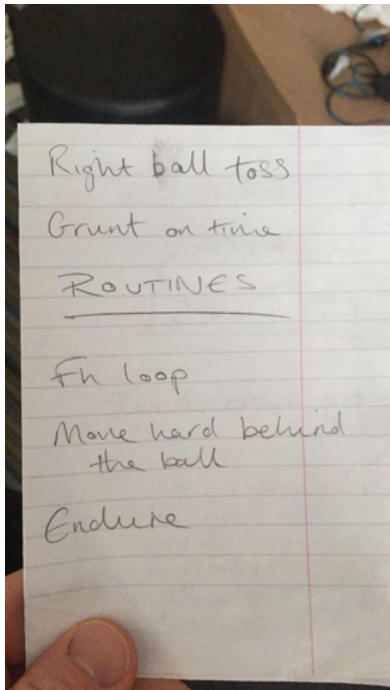 Right ball toss
Grunt on time
ROUTINES
Fh loop
Move hard behind
the ball
Endure